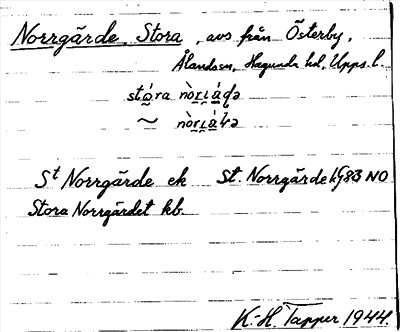 Norrgärde, Stora, avs från Österby,
Ålandsn, Hagunda hd, Upps. l.
St Norrgärde ek St. Norrgärde lg 83 NO
Stora Norrgärdet kb.
K-H. Tapper 1944.